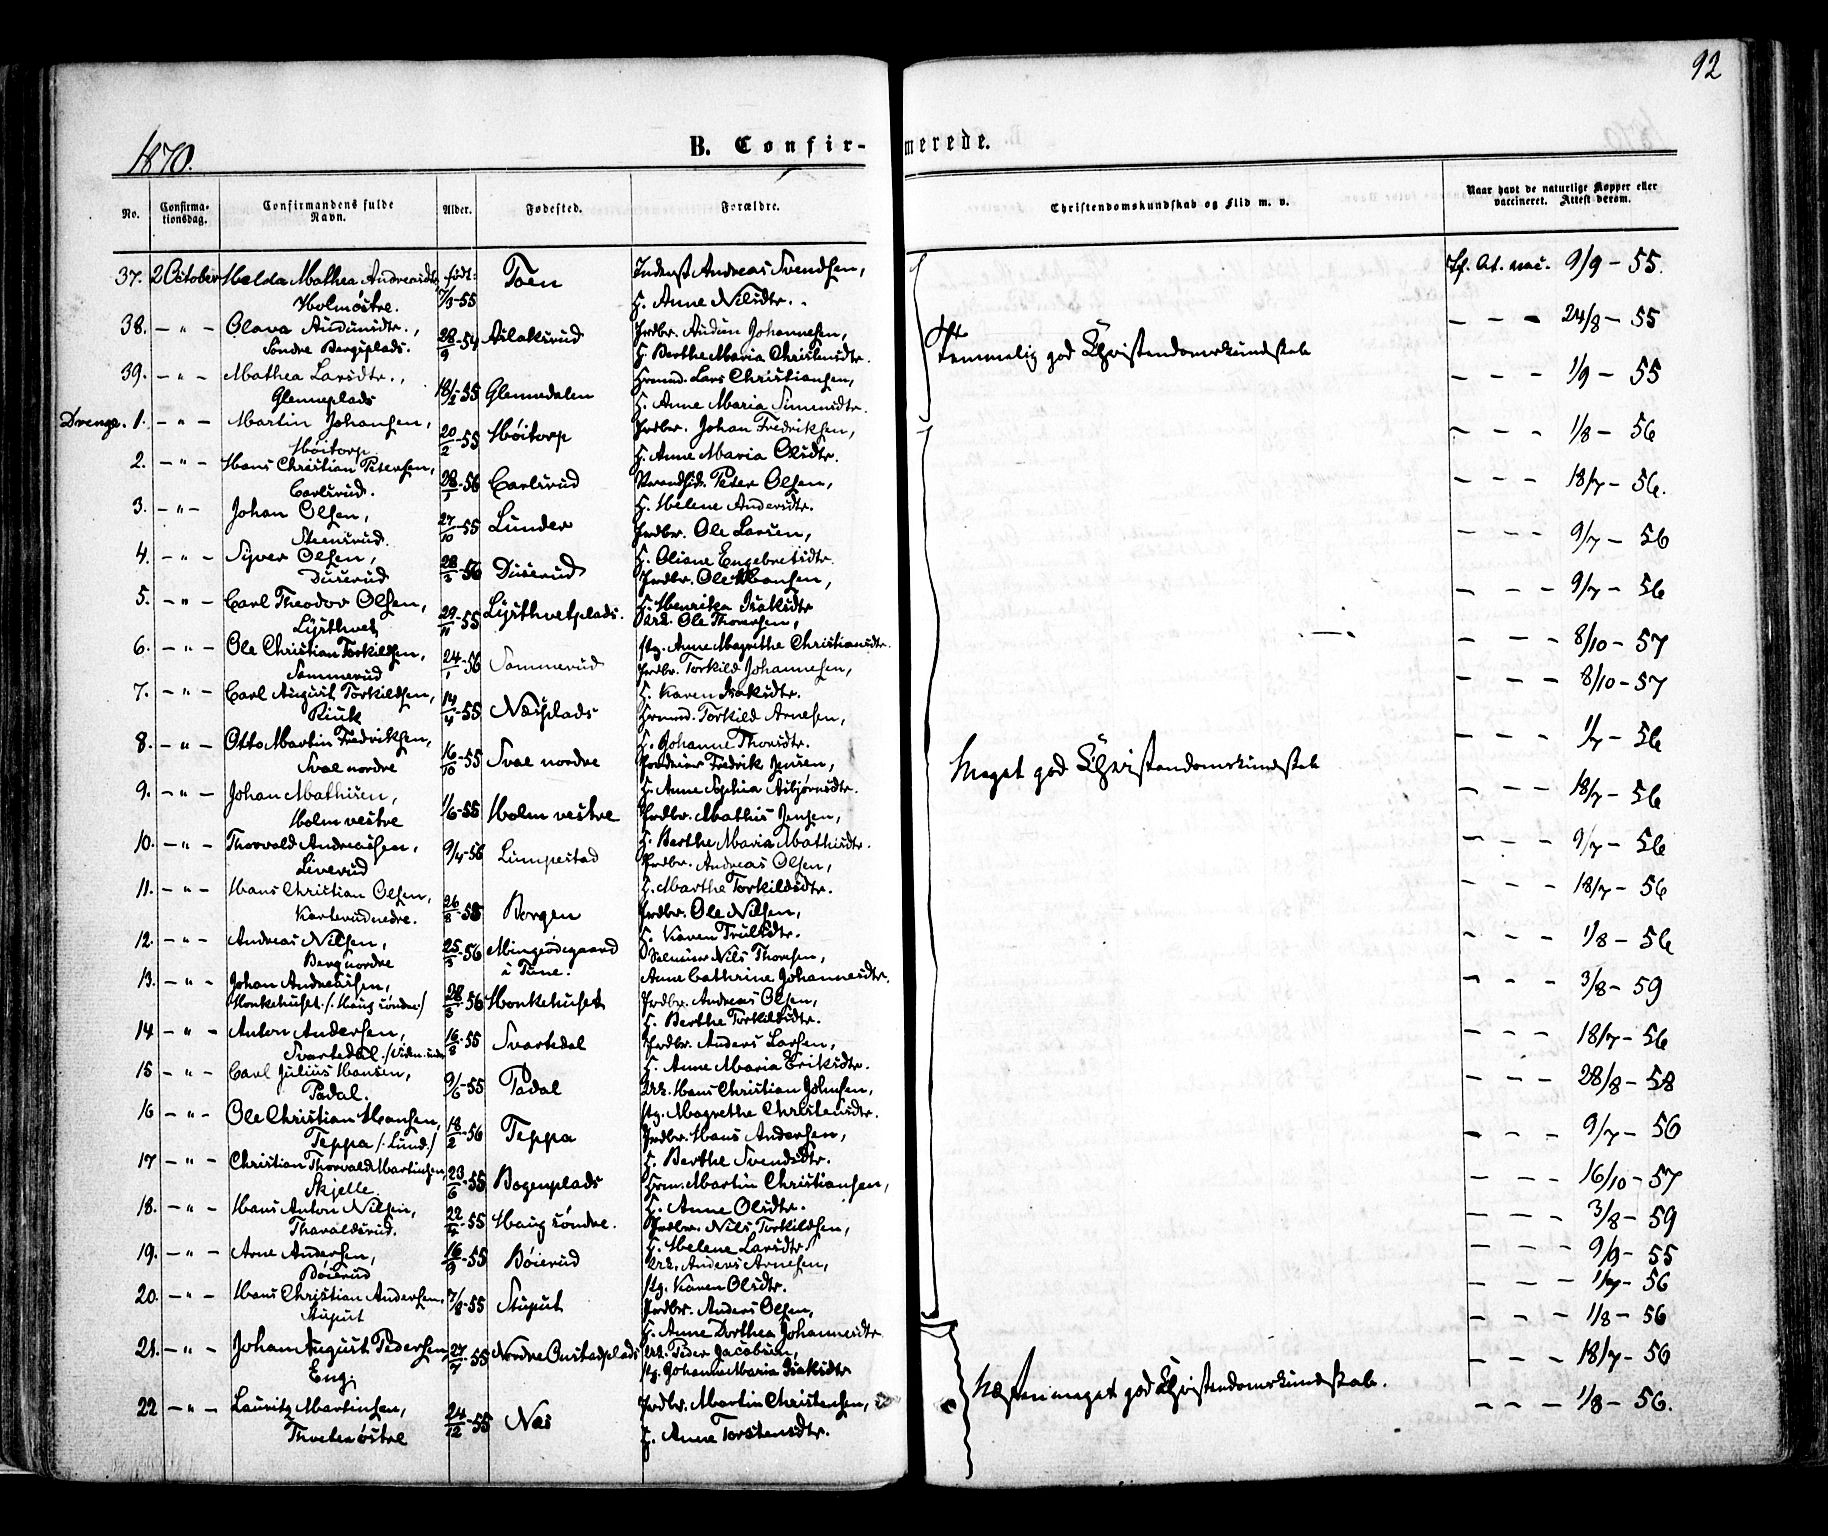 92
1870.
B. Confirmerede.
No. Confirmationsdag. Confirmandens fulde Navn. Alder. Fødested. Forældre. Christendomskundskab og Flid m. v. Naar havt de naturlige Kopper eller vaccineret. Attest derom.
37. 2 October Helda Mathea Andreasdtr, født: Toen Andreas Svendsen, 9/9 - 55.
Holmøstre. 7/3-55 H. Anne Nilsdtr.
38. - " - Olava Audunsdtr., 28/9-54 Aslaksrud Grdbr. Audun Johannesen, - - - 24/8 - 55
Søndre Bergsplads. H. Berthe Maria Christensdtr.
Temmelig god Christendomskundskab
39. - " - Mathea Larsdtr., 18/2-55 Glennedalen Hrmnd. Lars Christiansen, - - - 1/9 - 55
Glenneplads H. Anne Maria Simensdtr.
Drenge. 1. - " - Martin Johansen, 20/2-55 Høitorp Grdbr. Johan Fredriksen, - - - 1/8 - 56
Høitorp H. Anne Maria Olsdtr.
2. - " - Hans Christian Petersen, 28/1-56 Carlsrud Peter Olsen, - - - 18/7 - 56.
Carlsrud. H. Helene Andersdtr.
3. - " - Johan Olsen, 27/10-55 Lunder Grdbr. Ole Larsen, - - - 9/7 - 56
Steensrud. H. Oliane Engebretsdtr.
4. - " - Syver Olsen, 28/3-56 Duserud Grdbr. Ole Hansen, - - - 9/7 - 56
Duserud H. Henrika Isaksdtr
5. - " - Carl Theodor Olsen, 29/11-55 Lysthvetplads. Ole Thoresen, - - - 8/10 - 57
Lysthvet Anne Magrethe Christiansdtr.
6. - " - Ole Christian Torkildsen, 24/1-56 Sommerud Grdbr. Torkild Johannesen, - - - 8/10 - 57
Sommerud H. Karen Isaksdtr.
7. - " - Carl August Torkildsen, 14/4-55 Næsplads Hrmnd. Torkild Arnesen, - - - 1/7 - 56
H. Johanne Thorsdtr.
8. - " - Otto Martin Fredriksen, 16/10-55 Svae nordre Fredrik Jensen, - - - 18/7 - 56
Svae nordre H. Anne Sophia Asbjørnsdtr.
Meget god Christendomskundskab
9. - " - Johan Mathisen, 1/6-55 Holm vestre Grdbr. Mathis Jensen, - - - 9/7 - 56
Holm vestre H. Berthe Maria Mathisdtr.
10. - " - Thorvald Andreassen, 9/4-56 Limpestad Grdbr. Andreas Olsen, - - - 18/7 - 56
Leverud H. Marthe Torkildsdtr.
11. - " - Hans Christian Olsen, 26/8-55 Borgen Grdbr. Ole Nilsen, - - - 1/8 - 56
Karterudnedre. H. Karen Trulsdtr.
12. - " - Andreas Nilsen, 25/3-56 Mingeødegaard Nils Thoresen, - - - 3/8 - 59
Berg nordre i Tune. Anne Cathrine Johannesdtr.
13. - " - Johan Andreassen, 28/3-56 Honkehuset Grdbr. Andreas Olsen, - - - 18/7 - 56
Honkehuset. /: Haug søndre :/ H. Berthe Torkildsdtr.
14 - " - Anton Andersen, 16/8-55 Svartedal Grdbr. Anders Larsen, - - - 28/8 - 58
Svartedal H. Anne Maria Eriksdtr.
15 - " - Carl Julius Hansen, 9/6-55 Padal Hans Christian Johnsen, - - - 9/7 - 56
Padal. Magrethe Christensdtr.
16 - " - Ole Christian Hansen, 18/2-56 Teppa Grdbr. Hans Andersen, - - - 16/10 - 57
Teppa /: Lund :/ H. Berthe Svendsdtr.
17 - " - Christian Thorvald Martinsen, 23/6-55 Bogenplads Hrm. Martin Christiansen, - - - 3/8 - 59
Skjelle. H. Anne Olsdtr.
18. - " - Hans Anton Nilsen, 22/4-55 Haug søndre. Grdbr. Nils Torkildsen, - - - 9/9 - 55
Tharaldsrud. H. Helene Larsdtr.
19. - " - Arne Andersen, 16/9-55 Bøierud Anders Arnesen, - - - 1/7 - 56
Bøierud Karen Olsdtr.
20. - " - Hans Christian Andersen, 7/8-55 Stuput Grdbr. Anders Olsen, - - - 1/8 - 56
Stuput H. Anne Dorthea Johannesdtr.
21. - " - Johan August Pedersen, 27/7-55 Nordre Onstadplads Peder Jacobsen, - - - 18/7 - 56
Eng. Johanne Maria Isaksdtr
Næsten meget god Christendomskundskab.
22 - " - Lauritz Martinsen, 24/12-55 Næs Grdbr. Martin Christensen, - - - 1/8 - 56.
Thveter østre H. Anne Torstensdtr.